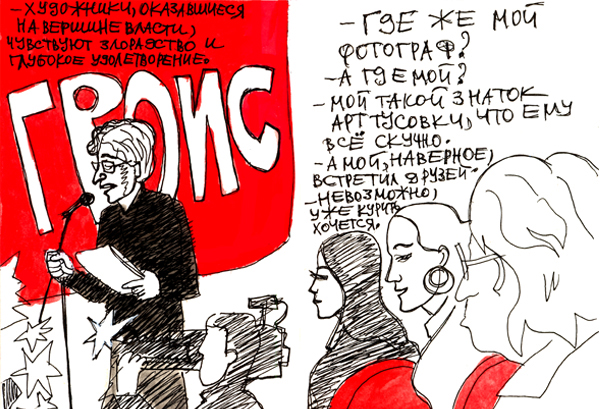 - ХУДОЖНИКИ, ОКАЗАВШИЕСЯ
НА ВЕРШИНЕ ВЛАСТИ,
ЧУВСТВУЮТ ЗЛОРАДСТВО И
ГЛУБОКОЕ УДОЛЕТВОРЕНИЕ.
ГРОЙС
- ГДЕ ЖЕ МОЙ
ФОТОГРАФ?
- А ГДЕ МОЙ?
- МОЙ ТАКОЙ ЗНАТОК
АРТ ТУСОВКИ, ЧТО ЕМУ
ВСЁ СКУЧНО.
- А МОЙ, НАВЕРНОЕ,
ВСТРЕТИЛ ДРУЗЕЙ.
- НЕВОЗМОЖНО,
УЖЕ КУРИТЬ
ХОЧЕТСЯ.